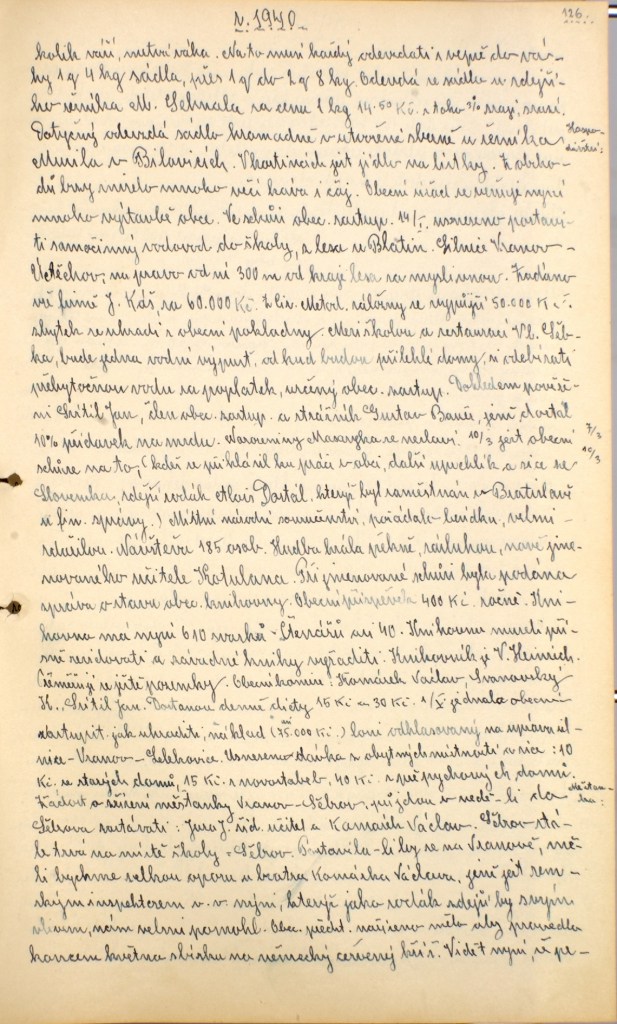 r. 1940
126.
kolik váží, mrtvá váha. Na to musí každý odevzdati s vepře do vá-
hy 1 q 4 kg sádla, přes 1 q do 2 q 8 kg. Odevzdá se sádlo u zdejší-
ho řezníka M. Sehnala za cenu 1 kg 14.50 Kč. z toho 3% srazí, ztrátí.
Dotyčný odevzdá sádlo hromadně v utvořené sběrně u řezníka
Musila v Bílovicích. V hostincích jest jídlo na lístky. Z obcho-
dů brzy mizelo mnoho věcí káva i čaj. Obecní úřad se věnuje nyní
mnoho výstavbě obce. Ve schůzi obec. zastup. 14/I. usneseno postavi-
ti samočinný vodovod do školy, z lesa u Blatin. Silnice Vranov-
Útěchov, na pravo od ní 300 m od kraje lesa za myslivnou. Zadáno
vše firmě J. Káš, za 60.000 Kč. Z Civ. Metod. záložny se vypůjčí 50.000 Kč.
zbytek se uhradí z obecní pokladny. Mezi školou a restaurací Vl. Séb-
ka, bude jedna vodní výpusť, od kud budou přilehlé domy, si odebírati
přebytečnou vodu za poplatek, určený obec. zastup. Dohledem pověře-
ni Srtil Jan, člen obec. zastup. a strážník Gustav Baněř, jenž dostal
10% přídavek na mzdu. Narozeniny Masaryka se neslaví. 10/3 jest obecní
7/3
10/3
schůze na to, (když se přihlásil ku práci v obci, další uprchlík a sice ze
Slovenska, zdejší rodák Alois Dostál. kterýž byl zaměstnán v Bratislavě
u fin. správy.) Místní národní souručenství, pořádalo besídku, velmi
zdařilou. Návštěva 185 osob. Hudba hrála pěkně, zásluhou, nově jme-
novaného učitele Kotulana. Při jmenované schůzi byla podána
zpráva o stavu obec. knihovny. Obecní příspěvek 400 Kč. ročně. Kni-
hovna má nyní 610 svazků. Čtenářů asi 40. Knihovnu museli pří-
sně revidovati a závadné knihy vyřaditi. Knihovník jí V. Heinich.
Cěměňují se ještě pozemky. Obecní komise: Komárek Václav, Ivanovský
H. Srtil Jan. Dostanou denní diety 15 Kč a 30 Kč. 1/V. jednalo obecní
zastupit. jak uhraditi, náklad (75.000 Kč.) loni odhlasovaný na úpravu sil-
nice - Vranov - Lelekovice. Usnesena dávka z obytných místností a sice: 10
Kč. ze starých domů, 15 Kč. z novostaveb, 40 Kč. z přepychových domů.
Žádost o zřízení měšťanky Vranov-Šebrov, půjdou v neděli do
Šebrova zastávati: Jura J. říd. učitel a Komárek Václav. Šebrov stá-
le trvá na místě školy = Šebrov. Postavila-li by se na Vranově, mě-
li bychme velkou oporu u bratra Komárka Václava, jenž jest zem-
ským inspektorem v. v. nyní, kterýž jako rodák zdejší by svým
vlivem, nám velmi pomohl. Obec. předst. nařízeno mělo aby provedlo
koncem května sbírku na německý červený kříž. Viděť nyní, že pe-
Hospo-
dářství:
Měšťan-
ka: